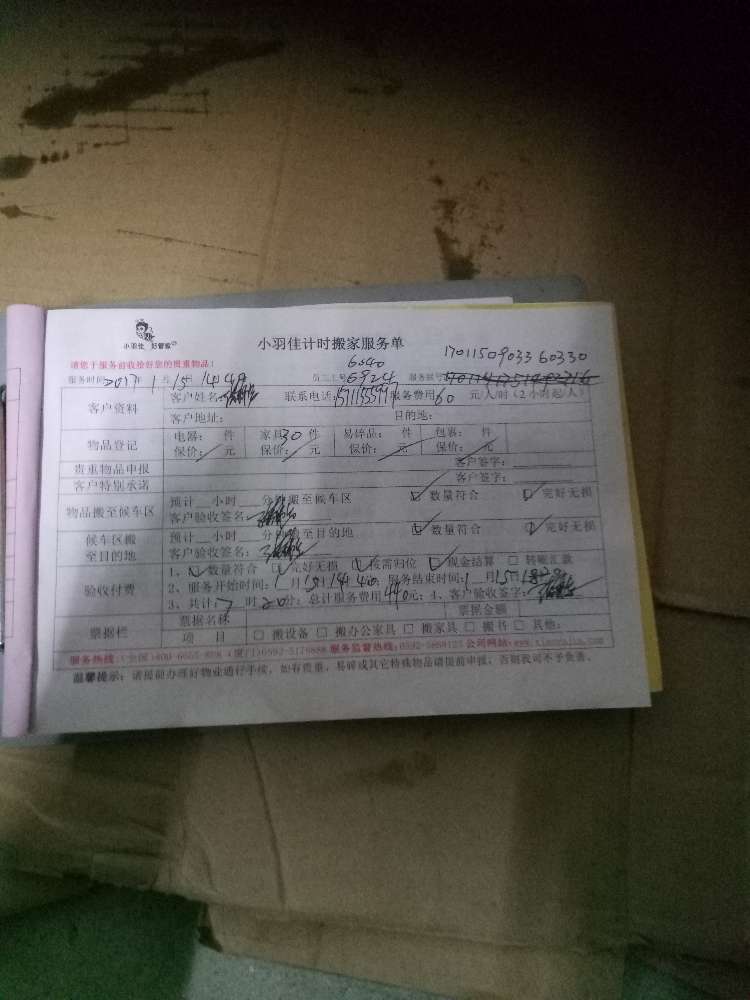 小羽佳 好管家
小羽佳计时搬家服务单
请您于服务前收捡好您的贵重物品!
6540
17011509033 60330
服务时间:2017年1月15日14时4 员工工号 6924 服务账号
客户资料 客户姓名: 联系电话: 服务费用60元/人/时(2小时起/人)
客户地址: 目的地:
物品登记 电器: 件 家具30件 易碎品: 件 包裹: 件
保价: 元 保价: 元 保价: 元 保价: 元
贵重物品申报 客户签字:
客户特别承诺 客户签字:
物品搬至候车区 预计 小时 分钟搬至候车区 数量符合 完好无损
客户验收签名:
候车区搬至目的地 预计 小时 分钟搬至目的地 数量符合 完好无损
客户验收签名:
验收付费 1、数量符合 完好无损 按需归位 现金结算 转账汇款
2、服务开始时间:1月15日14时40分;服务结束时间:1月15日
3、共计:7时20分;总计服务费用440元;4、客户验收签字:
票据栏 票据名称 票据金额
项 目 □ 搬设备 □ 搬办公家具 □ 搬家具 □ 搬书 □ 其他:
服务热线:(全国)400-6655-888 (厦门)0592-5176888 服务监督热线:0592-5868123 公司网站:www.xiaoyujia.com
温馨提示:请提前办理好物业通行手续,如有贵重、易碎或其它特殊物品请提前申报,否则我司不予负责。